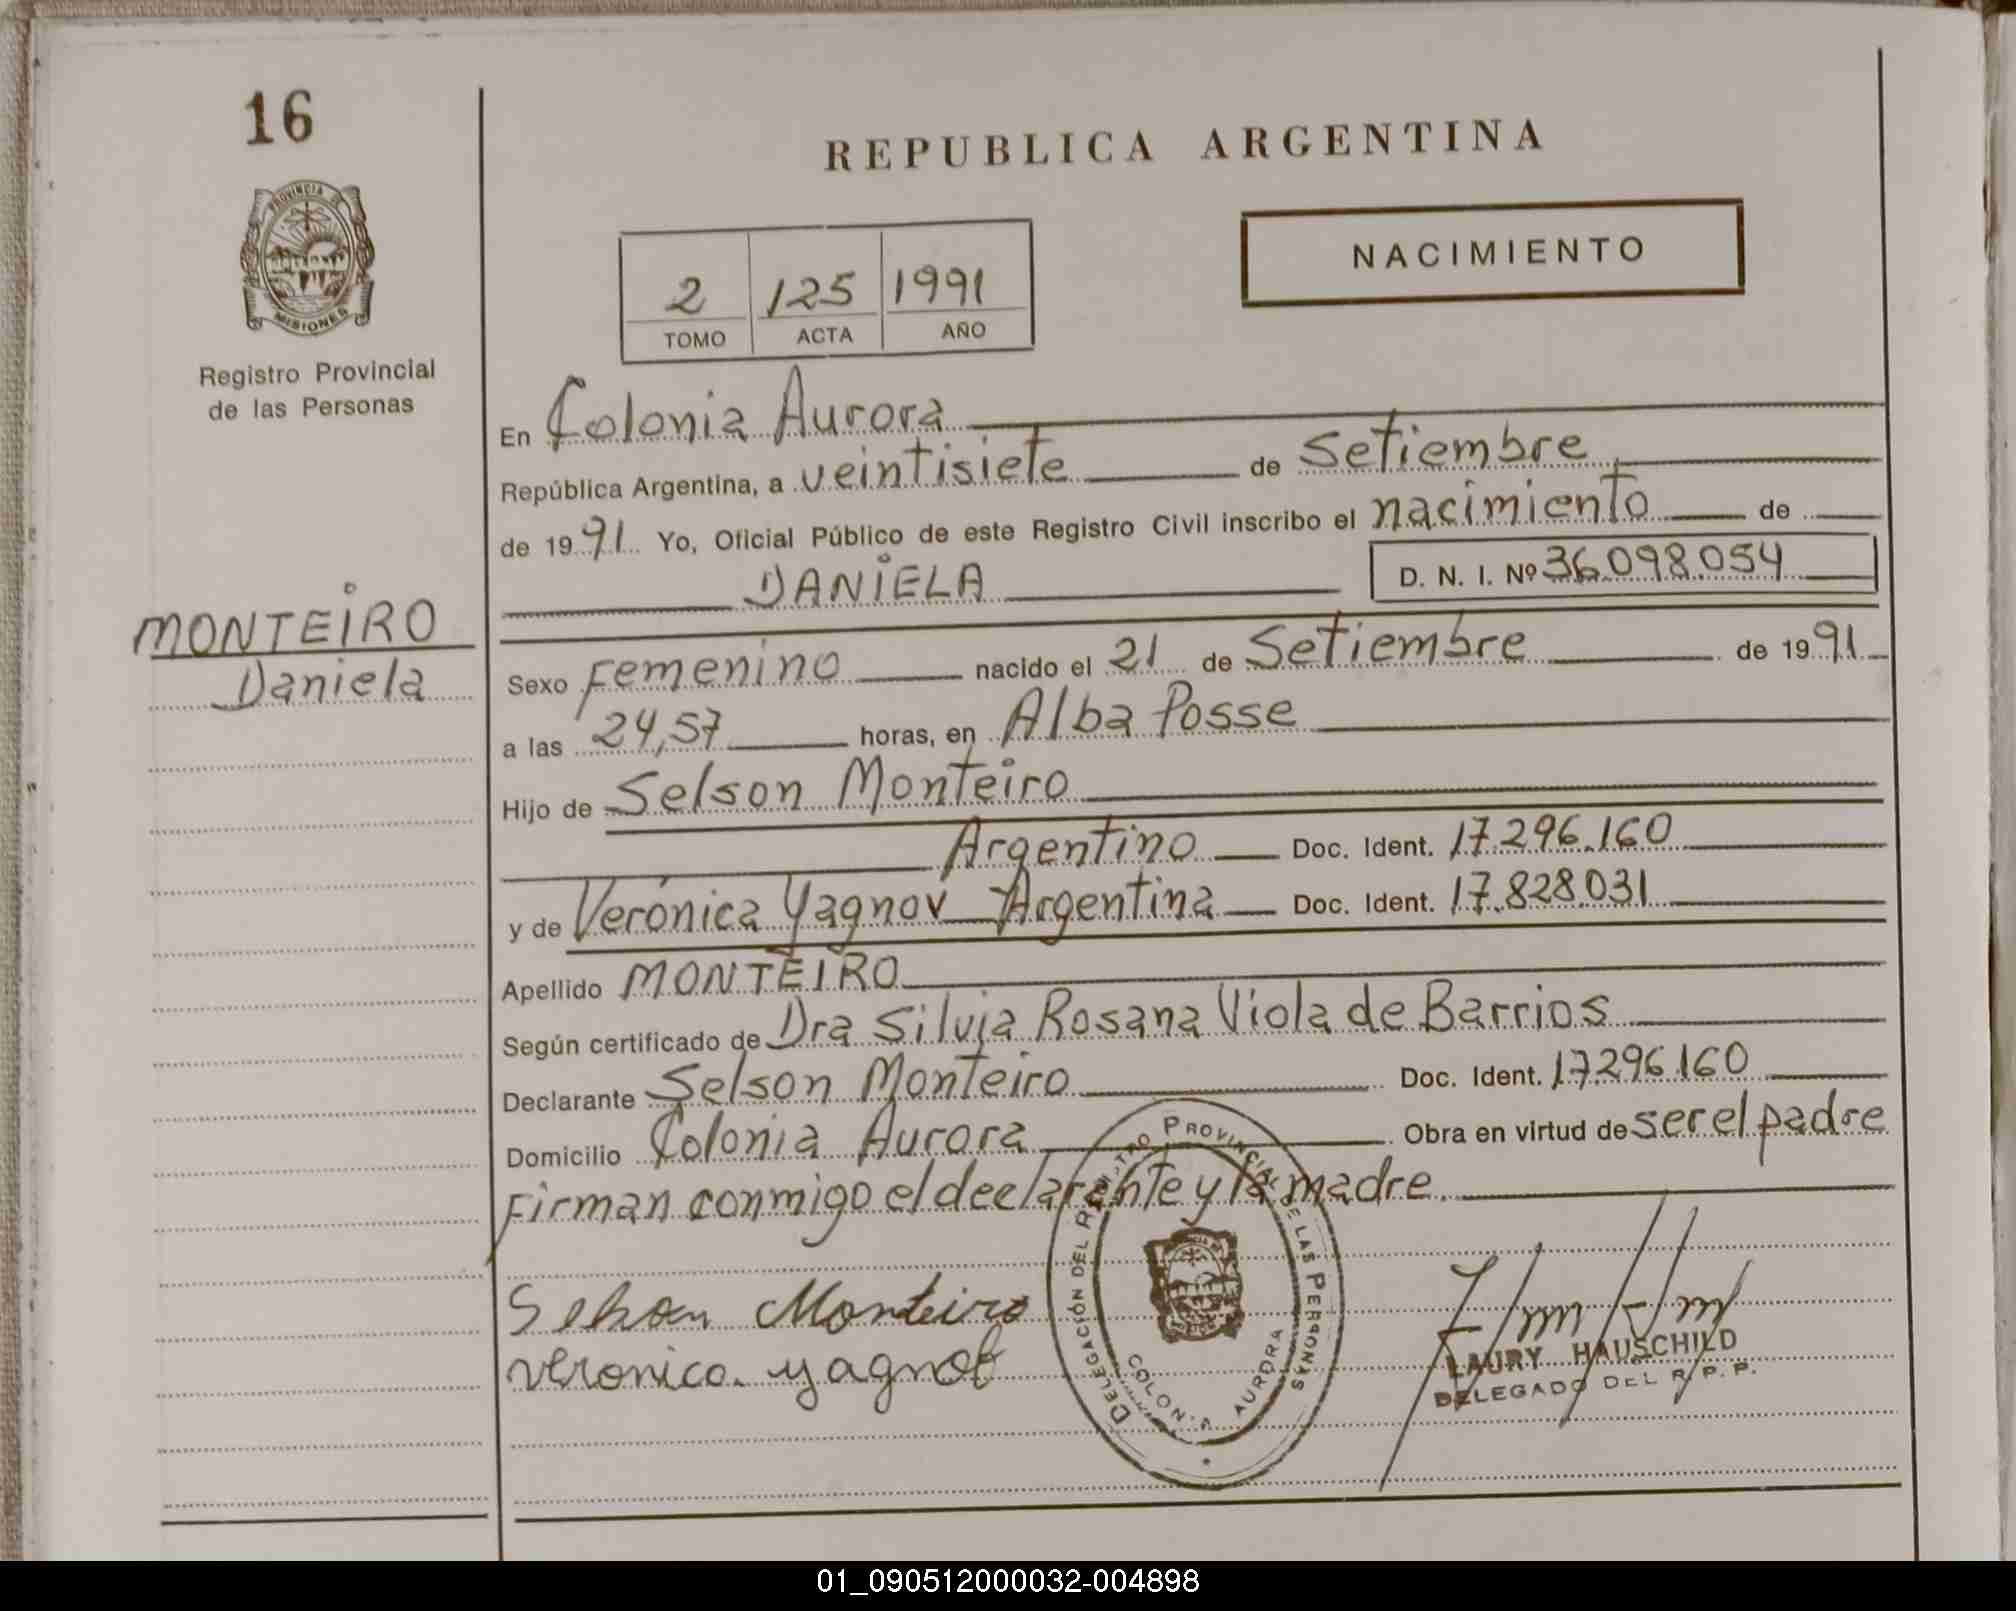 16
REPUBLICA ARGENTINA
PROVINCIA DE
MISIONES
NACIMIENTO
2 125 1991
TOMO ACTA AÑO
Registro Provincial
de las Personas
En Colonia Aurora
República Argentina, a veintisiete de Setiembre
de 1991 Yo, Oficial Público de este Registro Civil inscribo el nacimiento de
DANIELA D. N. I. Nº 36.098.054
MONTEIRO
Daniela
Sexo Femenino nacido el 21 de Setiembre de 1991
a las 24,57 horas, en Alba Posse
Hijo de Selson Monteiro
Argentino Doc. Ident. 17.296.160
y de Verónica Yagnov Argentina Doc. Ident. 17.828.031
Apellido MONTEIRO
Según certificado de Dra Silvia Rosana Viola de Barrios
Declarante Selson Monteiro Doc. Ident. 17.296.160
Domicilio Colonia Aurora Obra en virtud de ser el padre
Firman conmigo el declarante y la madre.
Selson Monteiro
veronica yagnob
DELEGACIÓN DEL REGISTRO PROVINCIAL DE LAS PERSONAS
COLONIA AURORA
LAURY HAUSCHILD
DELEGADO DEL R. P. P.
01_090512000032-004898